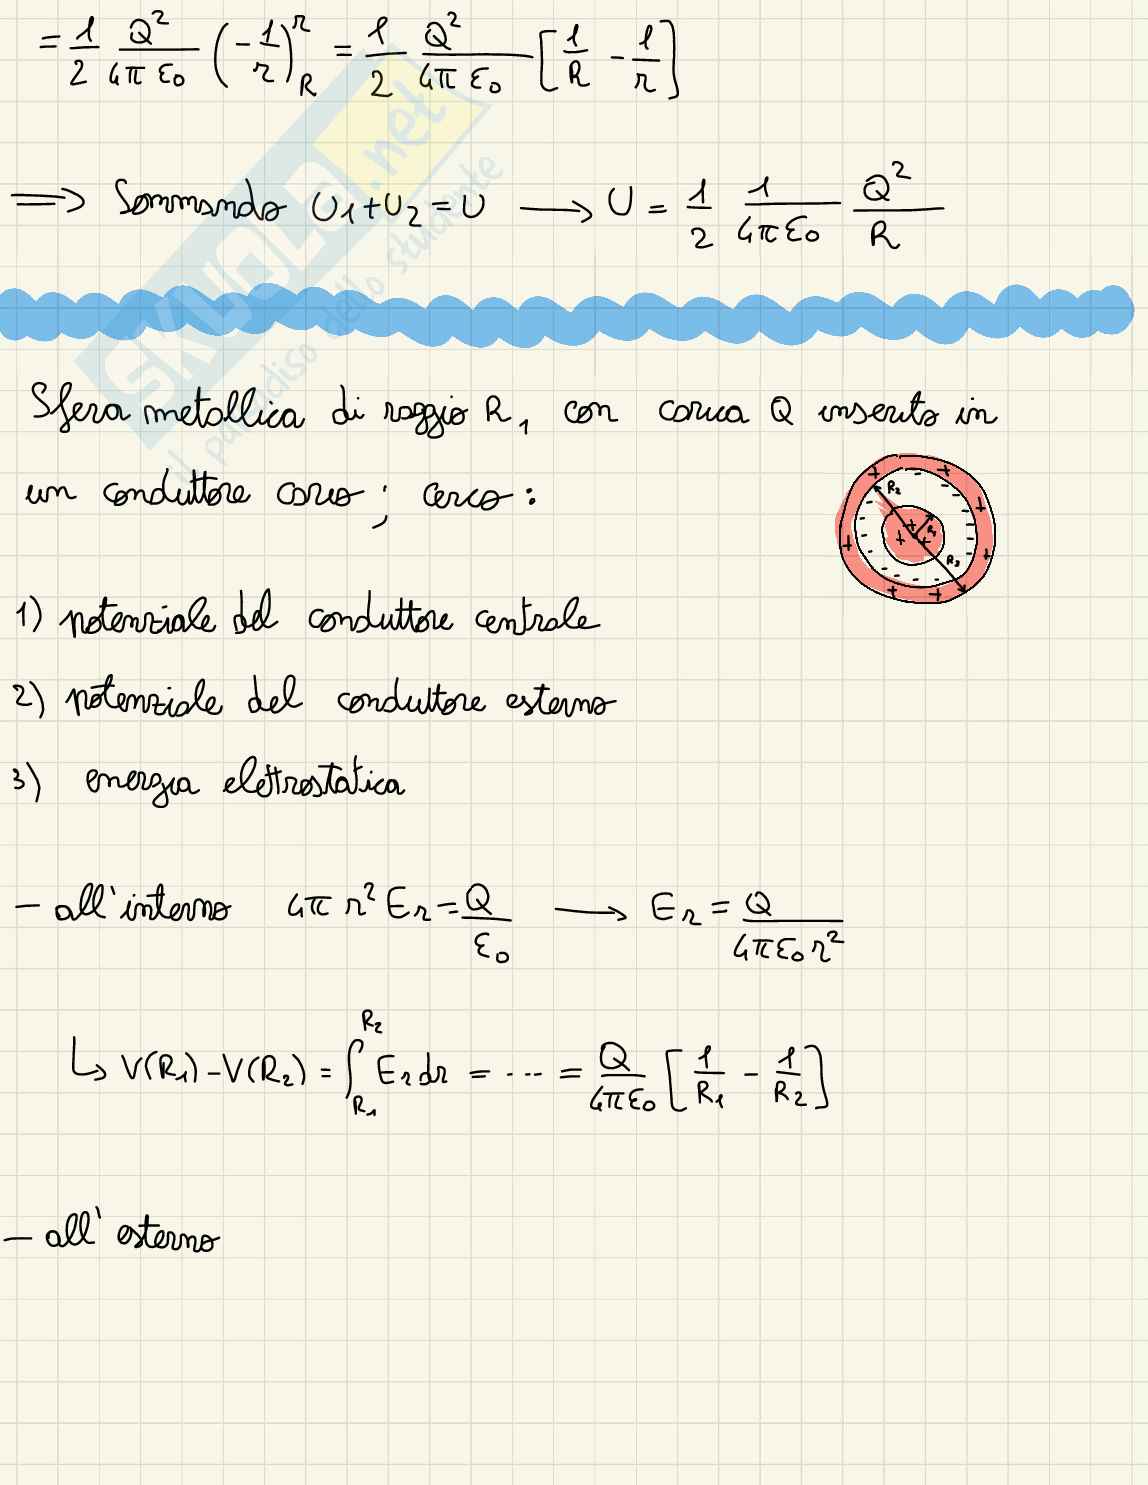 = 1/2 Q²/4π ε₀ (-1/r)ᴿʳ = 1/2 Q²/4π ε₀ [1/R - 1/r]
⟹ Sommando U₁+U₂=U ⟶ U = 1/2 1/4πε₀ Q²/R
SKUOLA.net
il paradiso dello studente
Sfera metallica di raggio R₁ con carica Q inserita in
un conduttore cavo ; cerco :
R₂
+ + +
R₁
R₃
1) potenziale del conduttore centrale
2) potenziale del conduttore esterno
3) energia elettrostatica
- all'interno 4π r² Er = Q/ε₀ ⟶ Er = Q/4πε₀r²
↳ V(R₁) - V(R₂) = ∫R₁^R₂ Er dr = ... = Q/4πε₀ [1/R₁ - 1/R₂]
- all'esterno